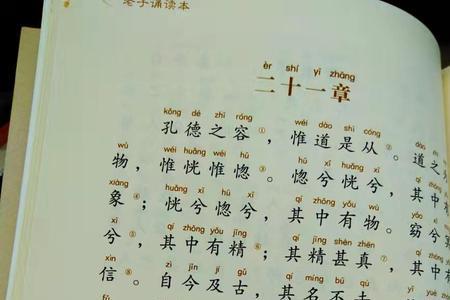 老子诵读本
èr shí yī zhāng
二十一章
kǒng dé zhī róng wéi dào shì cóng
孔德之容①，惟道是从。道之
wù wéi huǎng wéi hū hū xī huǎng xī
物，惟恍惟惚③。惚兮恍兮，其中
xiàng huǎng xī hū xī qí zhōng yǒu wù
象④；恍兮惚兮，其中有物。窈兮
xī qí zhōng yǒu jīng qí jīng shèn zhēn
兮⑤，其中有精⑥；其精甚真⑦，其
xìn zì jīn jí gǔ qí míng bú qù
信。自今及古，其名不去